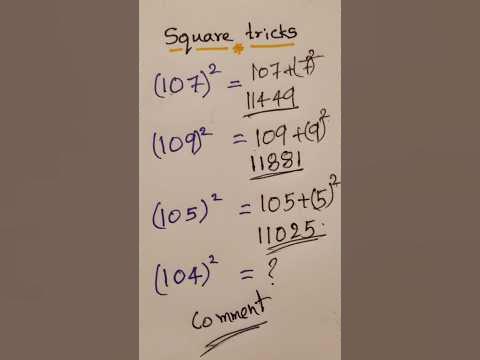 Square tricks
(107)² = 107+(7)²
11449
(109)² = 109+(9)²
11881
(105)² = 105+(5)²
11025.
(104)² = ?
Comment